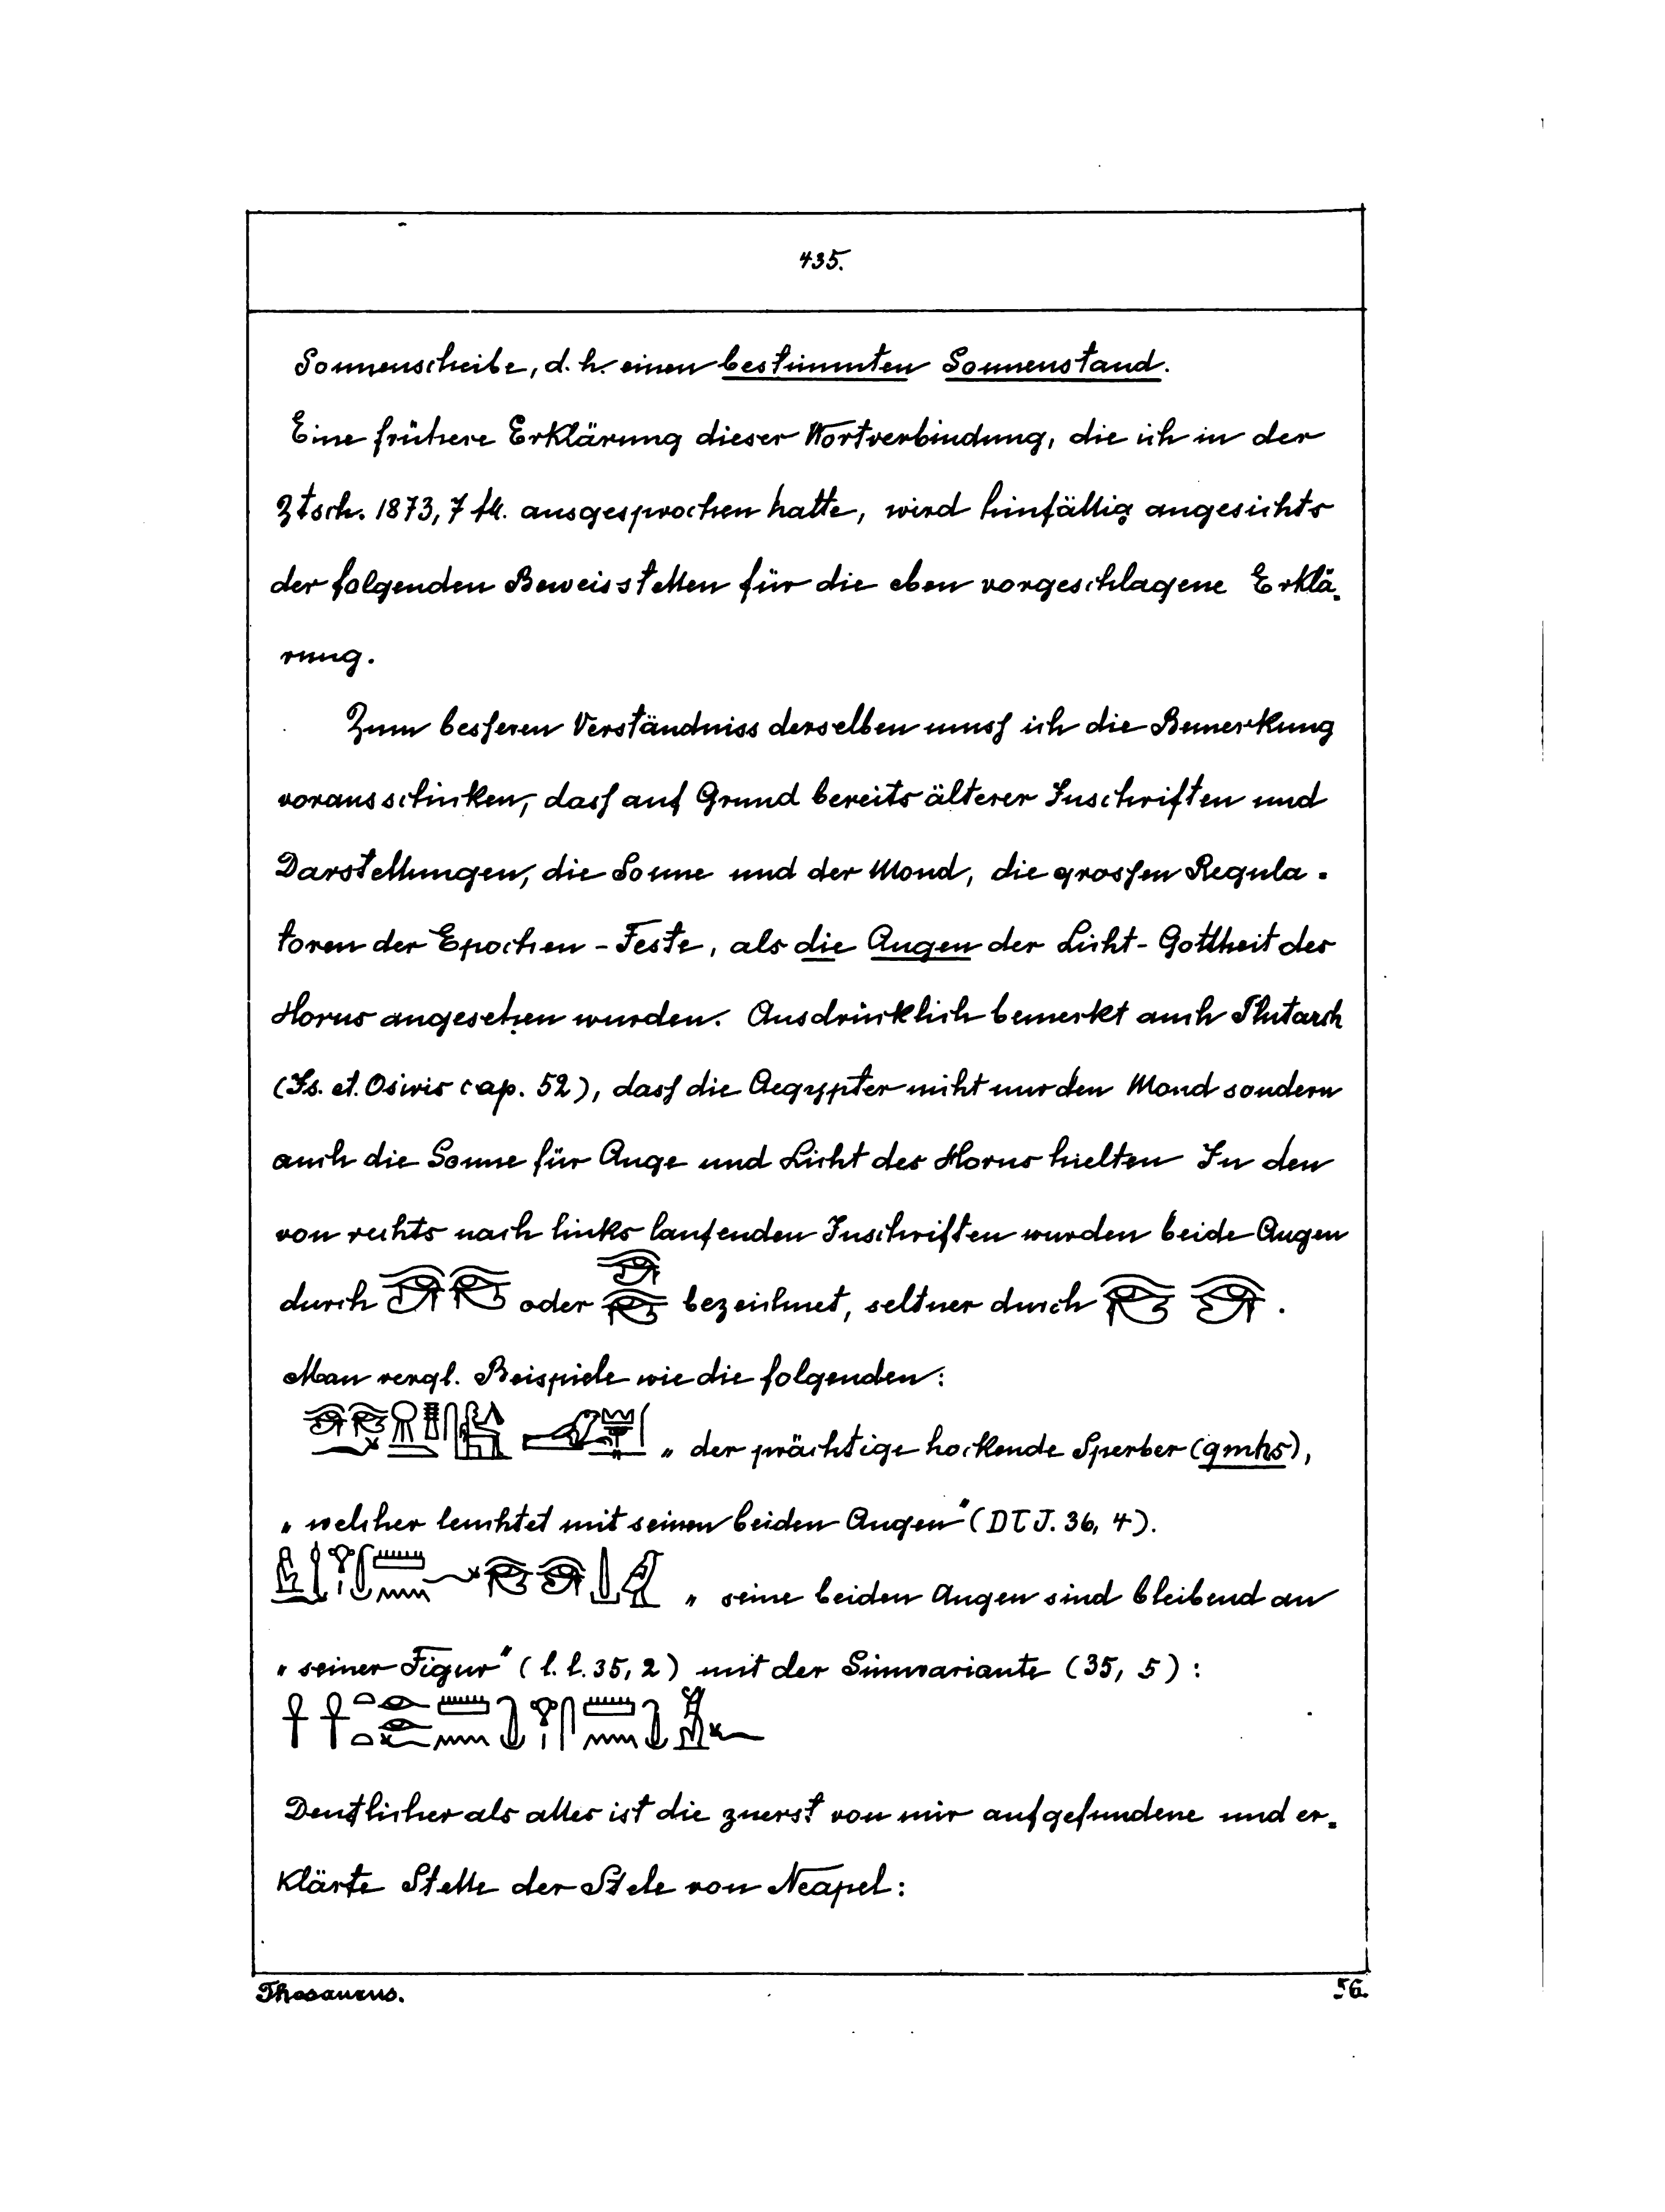 435.
Sonnenscheibe, d. h. einen bestimmten Sonnenstand.
Eine frühere Erklärung dieser Wortverbindung, die ich in der
Ztsch. 1873, 7 fll. ausgesprochen hatte, wird hinfällig angesichts
der folgenden Beweisstellen für die eben vorgeschlagene Erklä-
rung.
Zum besseren Verständniss derselben muss ich die Bemerkung
vorausschicken, dass auf Grund bereits älterer Inschriften und
Darstellungen, die Sonne und der Mond, die grossen Regula-
toren der Epochen-Feste, als die Augen der Licht-Gottheit des
Horus angesehen wurden. Ausdrücklich bemerkt auch Plutarch
(Is. et. Osiris cap. 52), dass die Aegypter nicht nur den Mond sondern
auch die Sonne für Auge und Licht des Horus hielten In den
von rechts nach links laufenden Inschriften wurden beide Augen
durch oder bezeichnet, seltner durch .
Man vergl. Beispiele wie die folgenden:
„ der prächtige hockende Sperber (qmhs),
„ welcher leuchtet mit seinen beiden Augen" (DTJ. 36, 4).
„ seine beiden Augen sind bleibend an
„ seiner Figur" (l. l. 35, 2) mit der Sinnvariante (35, 5):
Deutlicher als alles ist die zuerst von mir aufgefundene und er-
klärte Stelle der Stele von Neapel:
Thesaurus. 56.